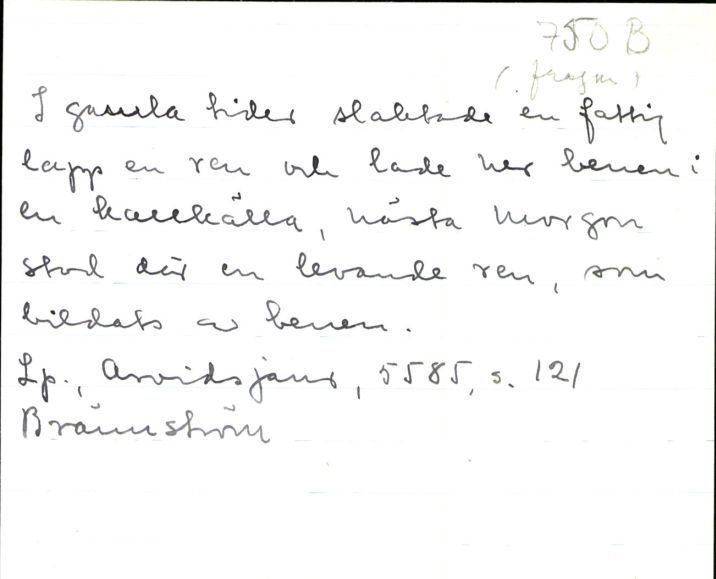 750 B
(fragm)
I gamla tider slaktade en fattig
lapp en ren och lade ner benen i
en kallkälla, nästa morgon
stod där en levande ren, som
bildats av benen.
Lp., Arvidsjaur, 5585, s. 121
Brännström